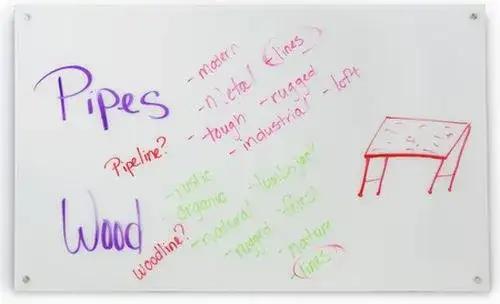 Pipes
- modern
- metal
- lines
- tough
- rugged
- industrial
- loft
Pipeline?
Wood
- rustic
- organic
- natural
- rugged
- lumberjack
- forest
- nature
- lines
Woodline?